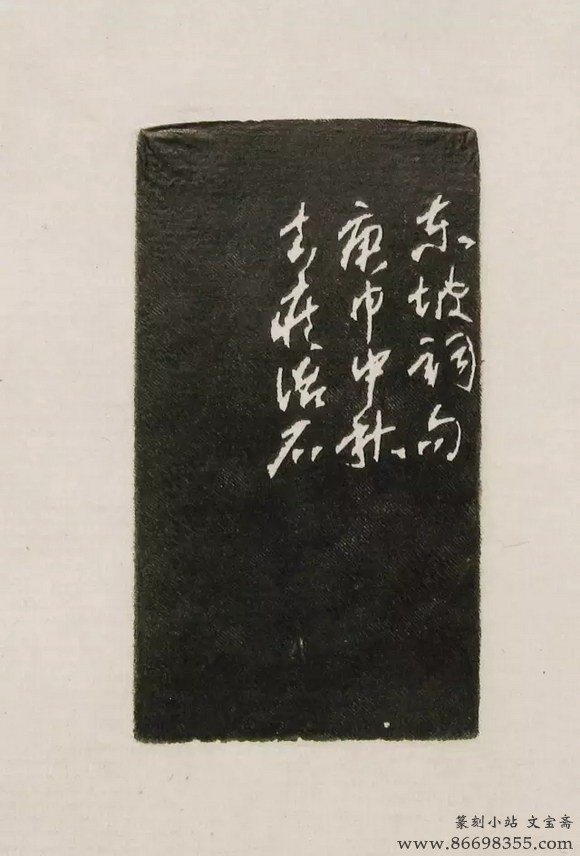 东坡词句
庚申中秋
去疾治石
篆刻小站 文宝斋
www.86698355.com